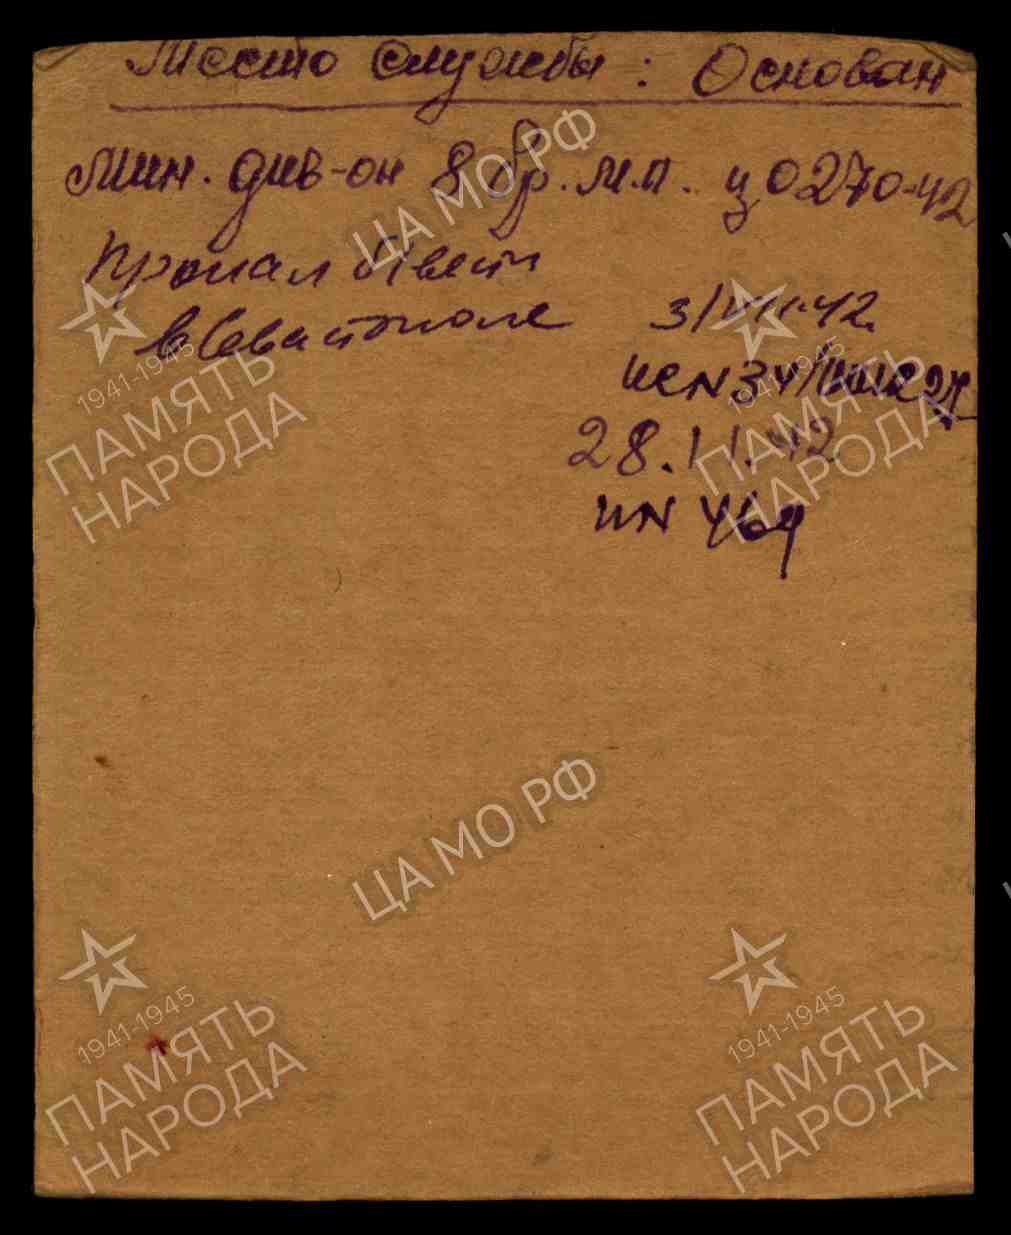 Место службы: Основан
Мин. див-он 8 бр. м.п. ц 0270-42
Пропал б/вест
в Севастополе 3/VII-42.
28.11.42
1941-1945
ПАМЯТЬ
НАРОДА
ЦА МО РФ
1941-1945
ПАМЯТЬ
НАРОДА
ЦА МО РФ
1941-1945
ПАМЯТЬ
НАРОДА
1941-1945
ПАМЯТЬ
НАРОДА